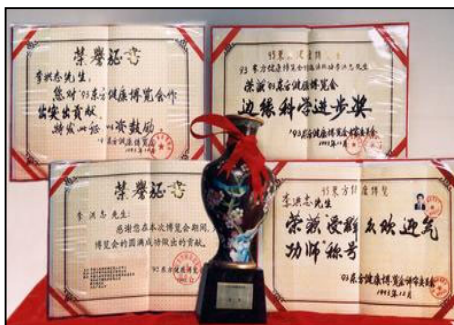 荣誉证书
李洪志先生：
您对'93东方健康博览会作
出突出贡献，
特发此证 以资鼓励
'93东方健康博览会
1993年12月
93东方健康博览
李洪志先生
荣获'93东方健康博览会
边缘科学进步奖
'93东方健康博览会
1993年12月
荣誉证书
李洪志 先生：
感谢您在本次博览会期间，
博览会的圆满成功做出的贡献。
93东方健康博览
93东方健康博览
李洪志先生
荣获受群众欢迎气
功师称号
93东方健康博览会
1993年12月